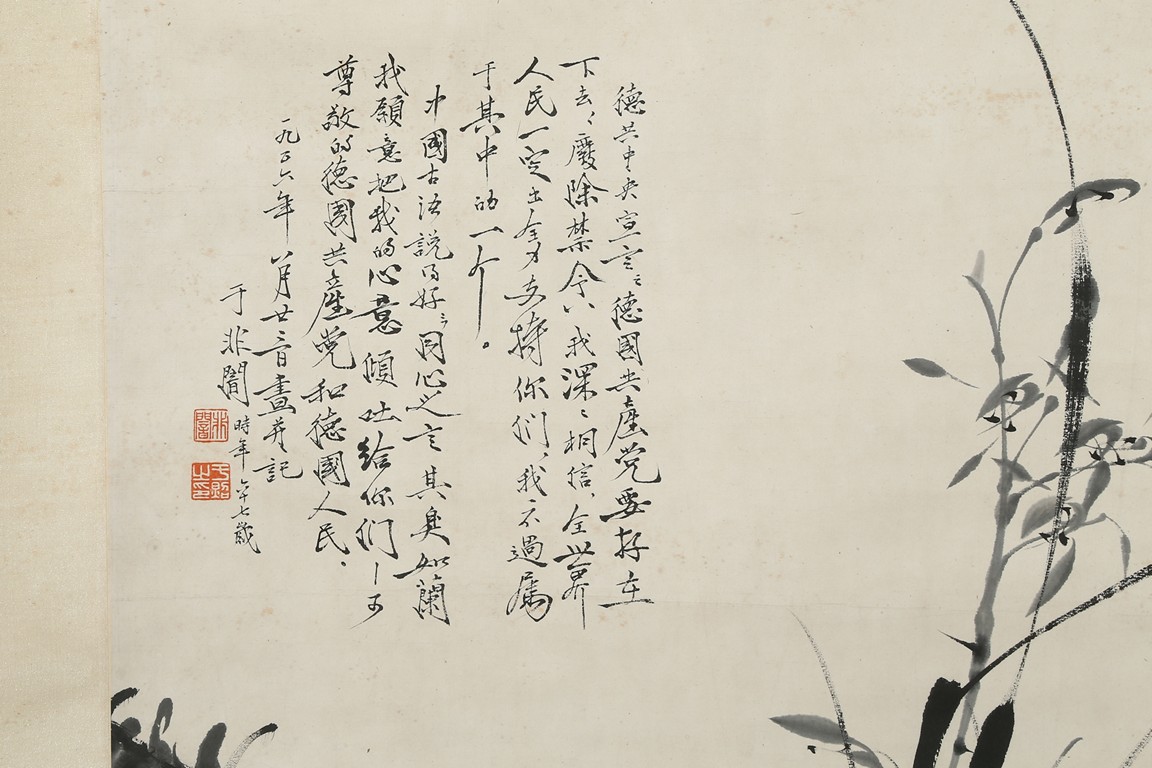 德共中央宣言：德國共產党要存在
下去，廢除禁令！我深〻相信、全世界
人民一定出全力支持你们，我不過属
于其中的一个。
中國古语説的好：同心之言其臭如蘭
我願意把我的心意傾吐给你们—可
尊敬的德國共產党和德國人民、
一九五六年八月廿日畫并記
于非闇
時年六十七歲
非闇
于照之印